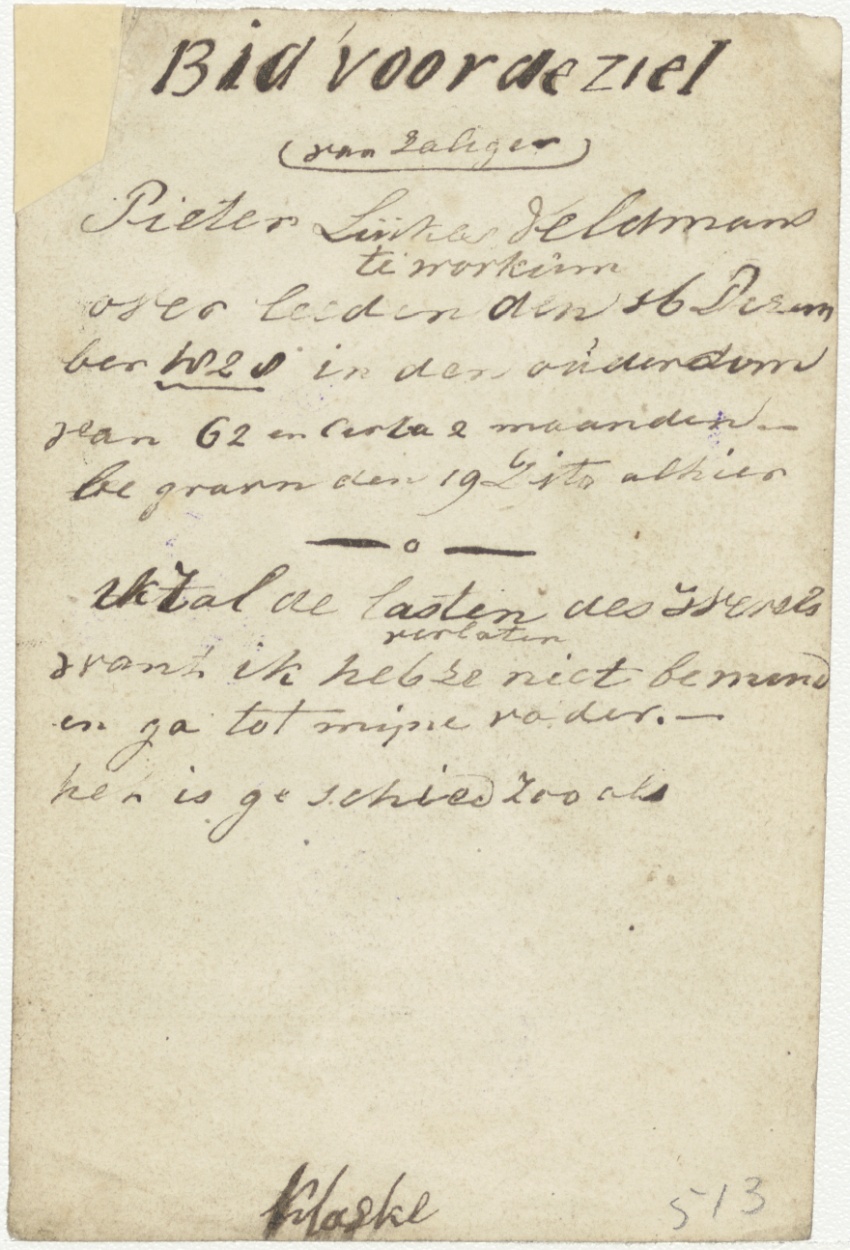 Bid voor de ziel
(van zaliger)
Pieter Linkes Veldmans
te workum
over leeden den 16 Decem
ber 1828 in den ouderdom
van 62 en Certa 2 maanden.—
be graven den 19 dito alhier
— o —
ik zal de lasten des werels
verlaten
want ik heb ze niet bemind
en ga tot mijne vader.—
het is ge schied zoo als
Klaske
513